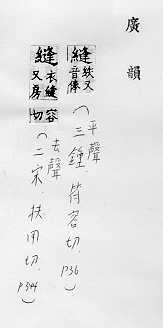 廣韻
縫紩又音俸(平聲三鍾.符容切.P36)
縫衣縫又房容切(去聲二宋.扶用切.P344)